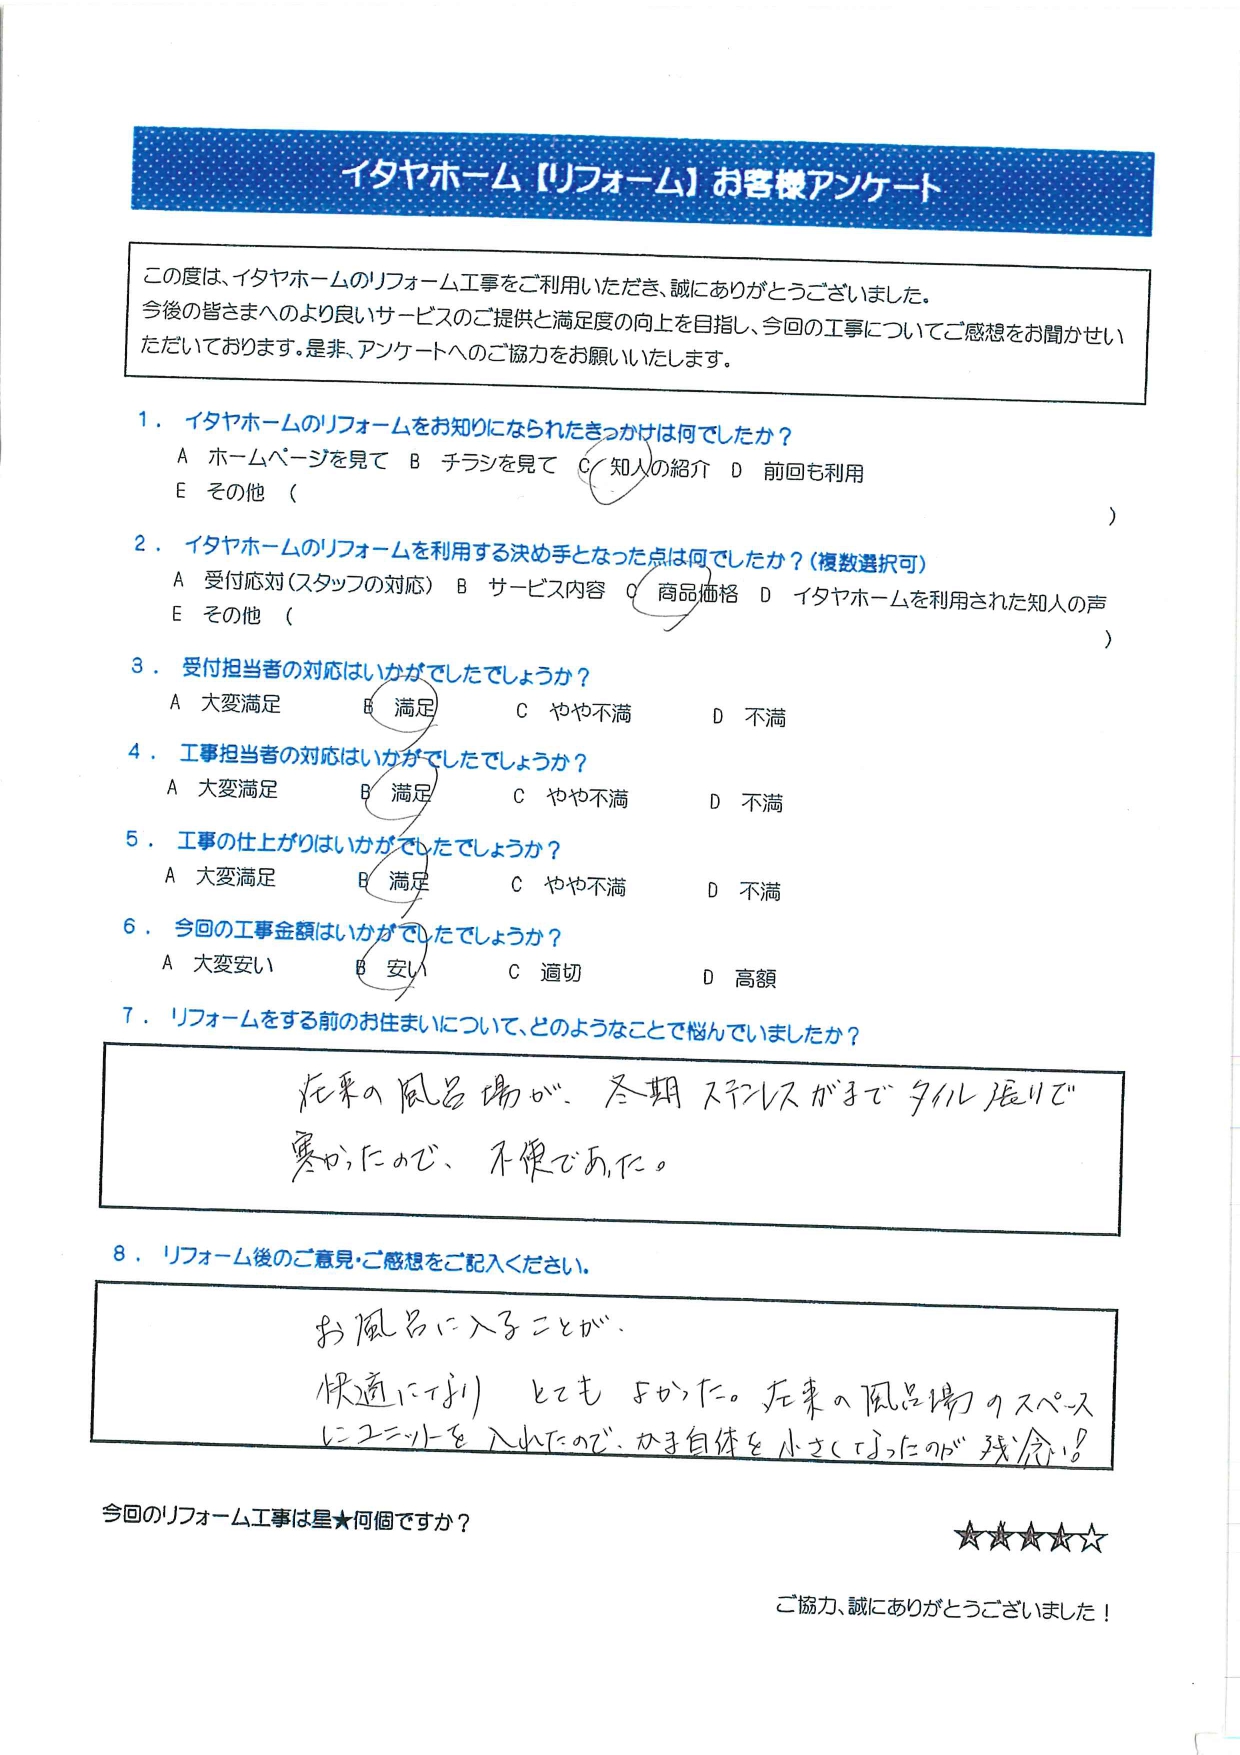 イタヤホーム【リフォーム】お客様アンケート
この度は、イタヤホームのリフォーム工事をご利用いただき、誠にありがとうございました。
今後の皆さまへのより良いサービスのご提供と満足度の向上を目指し、今回の工事についてご感想をお聞かせい
ただいております。是非、アンケートへのご協力をお願いいたします。
1. イタヤホームのリフォームをお知りになられたきっかけは何でしたか？
A ホームページを見て B チラシを見て C 知人の紹介 D 前回も利用
E その他 ( )
2. イタヤホームのリフォームを利用する決め手となった点は何でしたか？(複数選択可)
A 受付応対(スタッフの対応) B サービス内容 C 商品価格 D イタヤホームを利用された知人の声
E その他 ( )
3. 受付担当者の対応はいかがでしたでしょうか？
A 大変満足 B 満足 C やや不満 D 不満
4. 工事担当者の対応はいかがでしたでしょうか？
A 大変満足 B 満足 C やや不満 D 不満
5. 工事の仕上がりはいかがでしたでしょうか？
A 大変満足 B 満足 C やや不満 D 不満
6. 今回の工事金額はいかがでしたでしょうか？
A 大変安い B 安い C 適切 D 高額
7. リフォームをする前のお住まいについて、どのようなことで悩んでいましたか？
在来の風呂場が、冬期ステンレスがまでタイル張りで
寒かったので、不便であった。
8. リフォーム後のご意見・ご感想をご記入ください。
お風呂に入ることが、
快適になり とても よかった。在来の風呂場のスペース
にユニットを入れたので、かま自体を小さくなったのが残念!!
今回のリフォーム工事は星★何個ですか？
★★★★☆
ご協力、誠にありがとうございました！